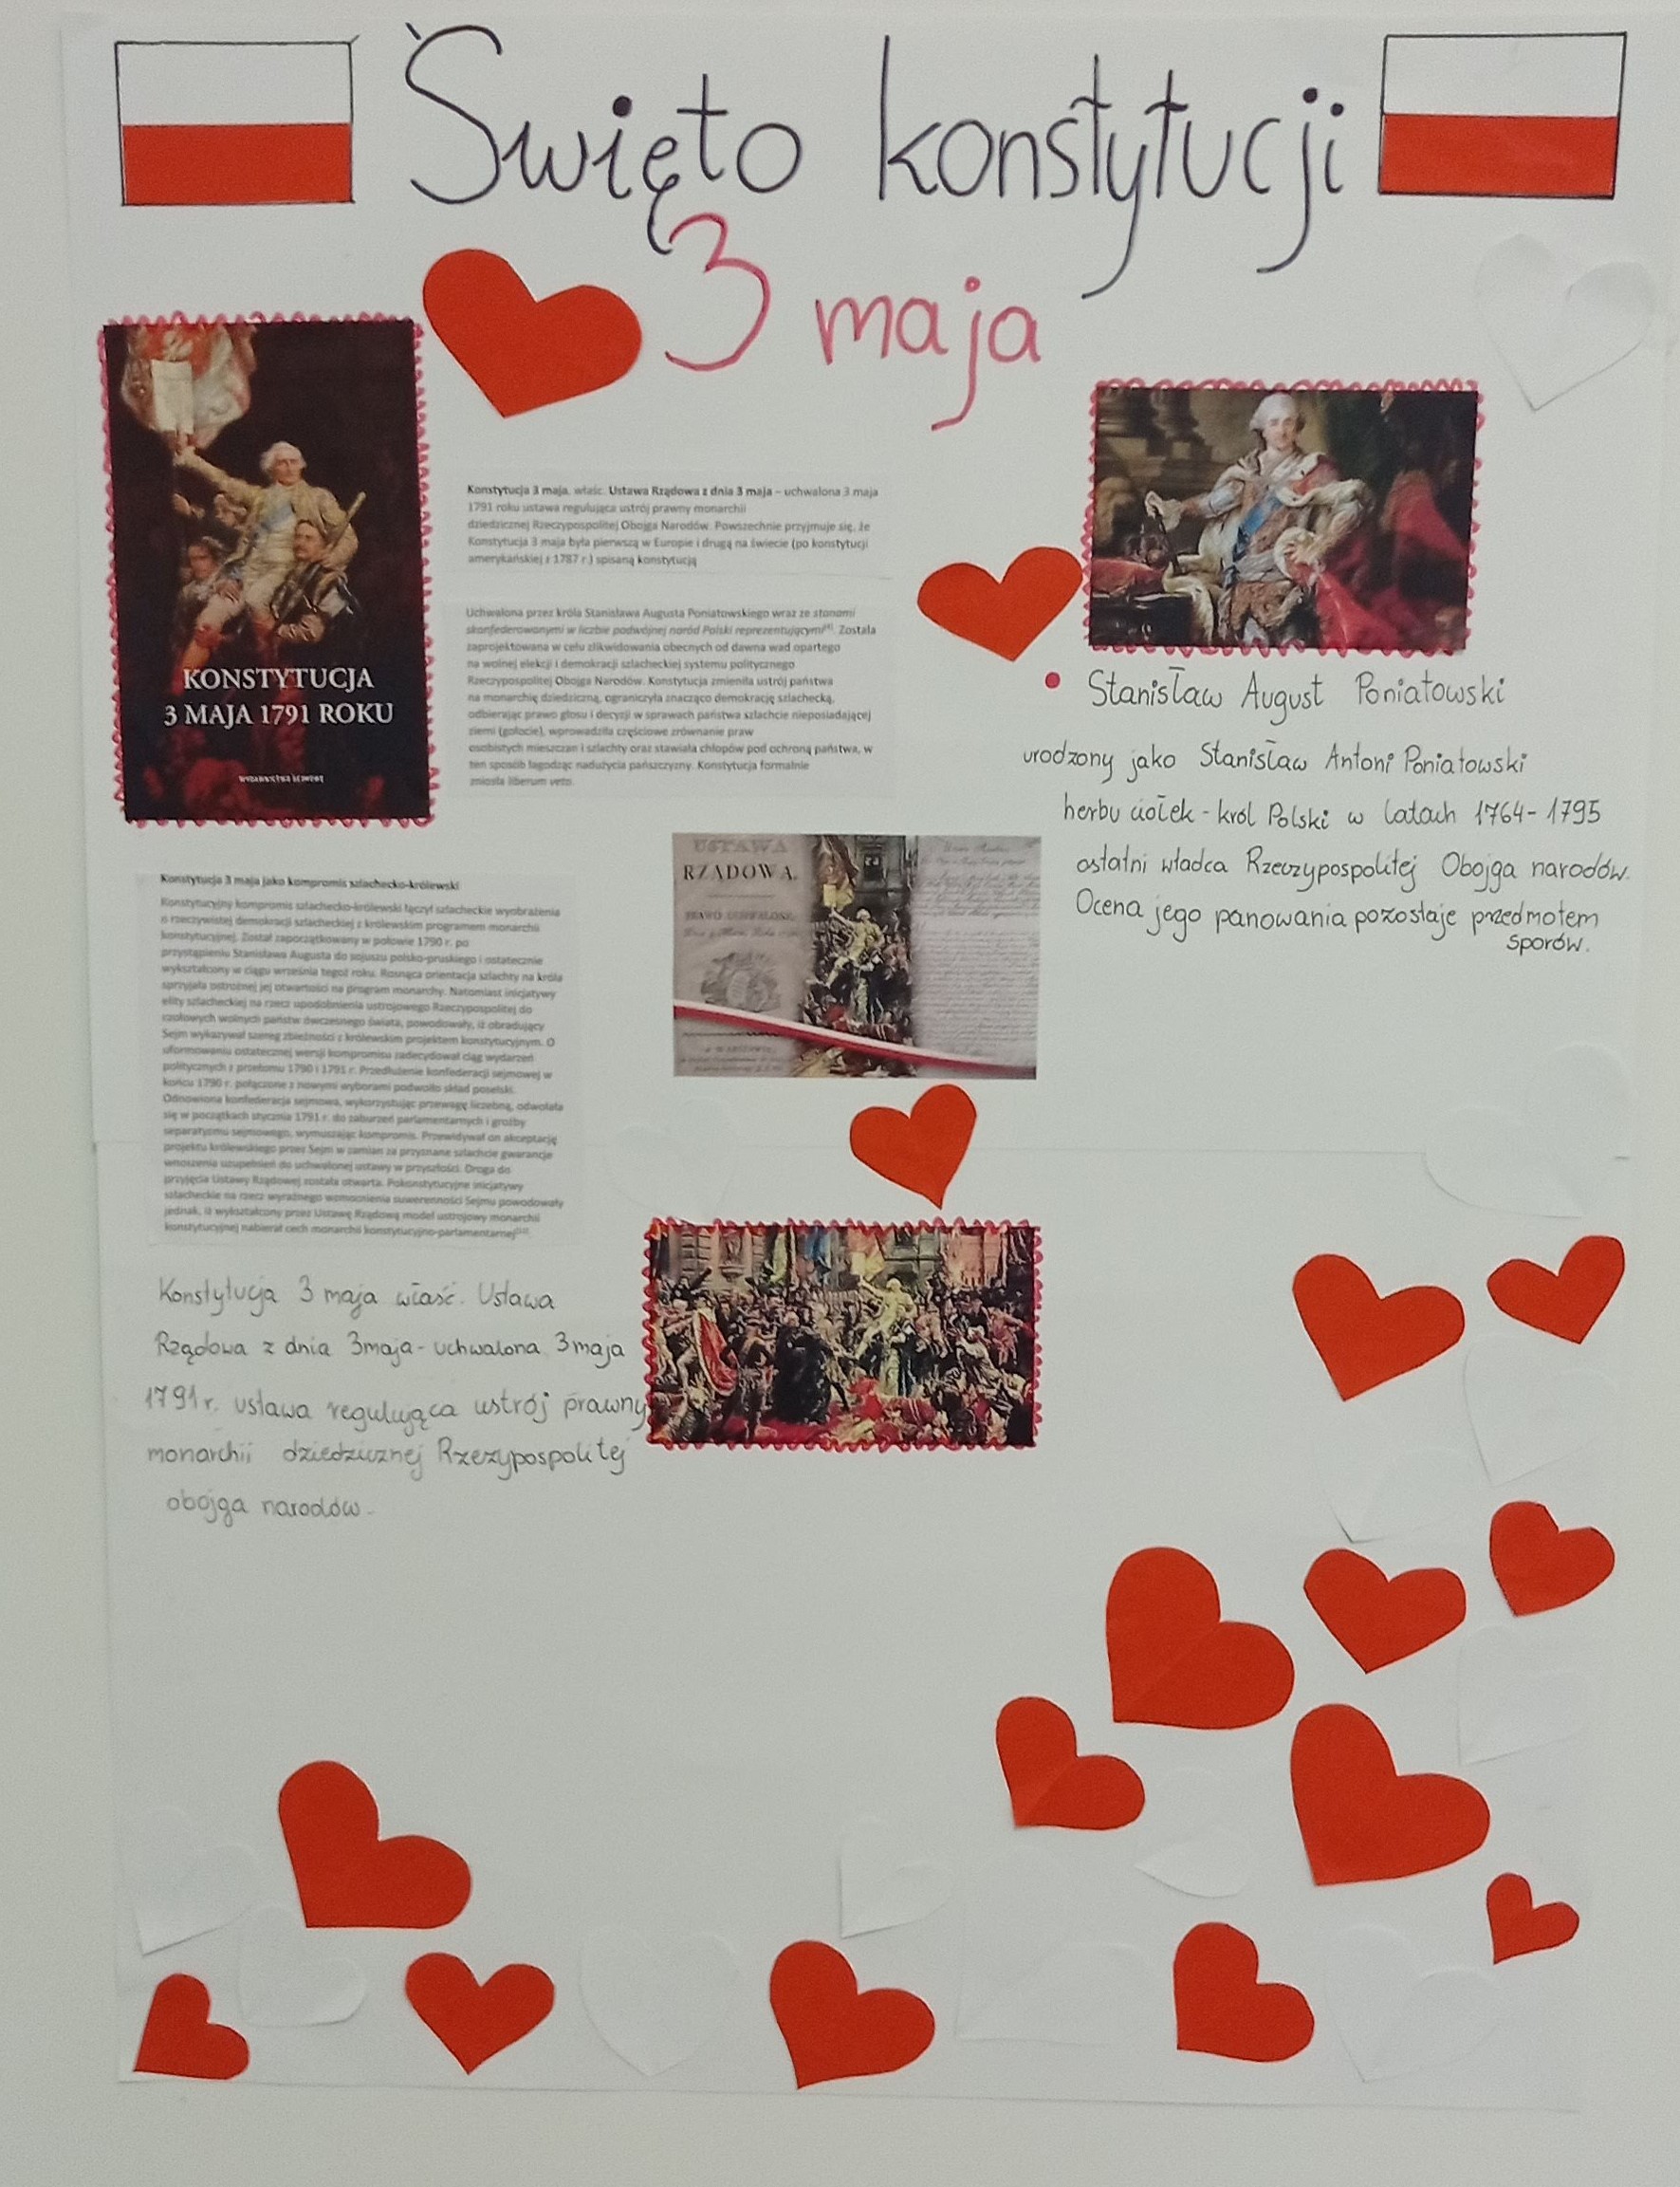 Święto konstytucji
3 maja
KONSTYTUCJA
3 MAJA 1791 ROKU
Konstytucja 3 maja, właśc. Ustawa Rządowa z dnia 3 maja – uchwalona 3 maja
1791 roku ustawa regulująca ustrój prawny monarchii
dziedzicznej Rzeczypospolitej Obojga Narodów. Powszechnie przyjmuje się, że
Konstytucja 3 maja była pierwszą w Europie i drugą na świecie (po konstytucji
amerykańskiej z 1787 r.) spisaną konstytucją
Uchwalona przez króla Stanisława Augusta Poniatowskiego wraz ze stanami
skonfederowanymi w liczbie podwójnej naród Polski reprezentującymi. Została
zaprojektowana w celu zlikwidowania obecnych od dawna wad opartego
na wolnej elekcji i demokracji szlacheckiej systemu politycznego
Rzeczypospolitej Obojga Narodów. Konstytucja zmieniła ustrój państwa
na monarchię dziedziczną, ograniczyła znacząco demokrację szlachecką,
odbierając prawo głosu i decyzji w sprawach państwa szlachcie nieposiadającej
ziemi (gołocie), wprowadziła częściowe zrównanie praw
osobistych mieszczan i szlachty oraz stawiała chłopów pod ochroną państwa, w
ten sposób łagodząc nadużycia pańszczyzny. Konstytucja formalnie
zniosła liberum veto.
• Stanisław August Poniatowski
urodzony jako Stanisław Antoni Poniatowski
herbu ciołek - król Polski w latach 1764-1795
ostatni władca Rzeczypospolitej Obojga narodów.
Ocena jego panowania pozostaje przedmotem
sporów.
USTAWA
RZĄDOWA.
Konstytucja 3 maja jako kompromis szlachecko-królewski
Konstytucyjny kompromis szlachecko-królewski łączył szlacheckie wyobrażenia
o rzeczywistej demokracji szlacheckiej z królewskim programem monarchii
konstytucyjnej. Został zapoczątkowany w połowie 1790 r. po
przystąpieniu Stanisława Augusta do sojuszu polsko-pruskiego i ostatecznie
wykształcony w ciągu września tegoż roku. Rosnąca orientacja szlachty na króla
sprzyjała ostrożnej jej otwartości na program monarchy. Natomiast inicjatywy
elity szlacheckiej na rzecz upodobnienia ustrojowego Rzeczypospolitej do
czołowych wolnych państw ówczesnego świata, powodowały, iż obradujący
Sejm wykazywał szereg zbieżności z królewskim projektem konstytucyjnym. O
uformowaniu ostatecznej wersji kompromisu zadecydował ciąg wydarzeń
politycznych z przełomu 1790 i 1791 r. Przedłużenie konfederacji sejmowej w
końcu 1790 r. połączone z nowymi wyborami podwoiło skład poselski.
Odnowiona konfederacja sejmowa, wykorzystując przewagę liczebną, odwołała
się w początkach stycznia 1791 r. do zaburzeń parlamentarnych i groźby
separatyzmu sejmowego, wymuszając kompromis. Przewidywał on akceptację
projektu królewskiego przez Sejm w zamian za przyznane szlachcie gwarancje
wnoszenia uzupełnień do uchwalonej ustawy w przyszłości. Droga do
przyjęcia Ustawy Rządowej została otwarta. Pokonstytucyjne inicjatywy
szlacheckie na rzecz wyraźnego wzmocnienia suwerenności Sejmu powodowały
jednak, iż wykształcony przez Ustawę Rządową model ustrojowy monarchii
konstytucyjnej nabierał cech monarchii konstytucyjno-parlamentarnej
Konstytucja 3 maja właść. Ustawa
Rządowa z dnia 3maja - uchwalona 3maja
1791r. ustawa regulująca ustrój prawny
monarchii dziedzicznej Rzezypospolitej
obojga narodów.